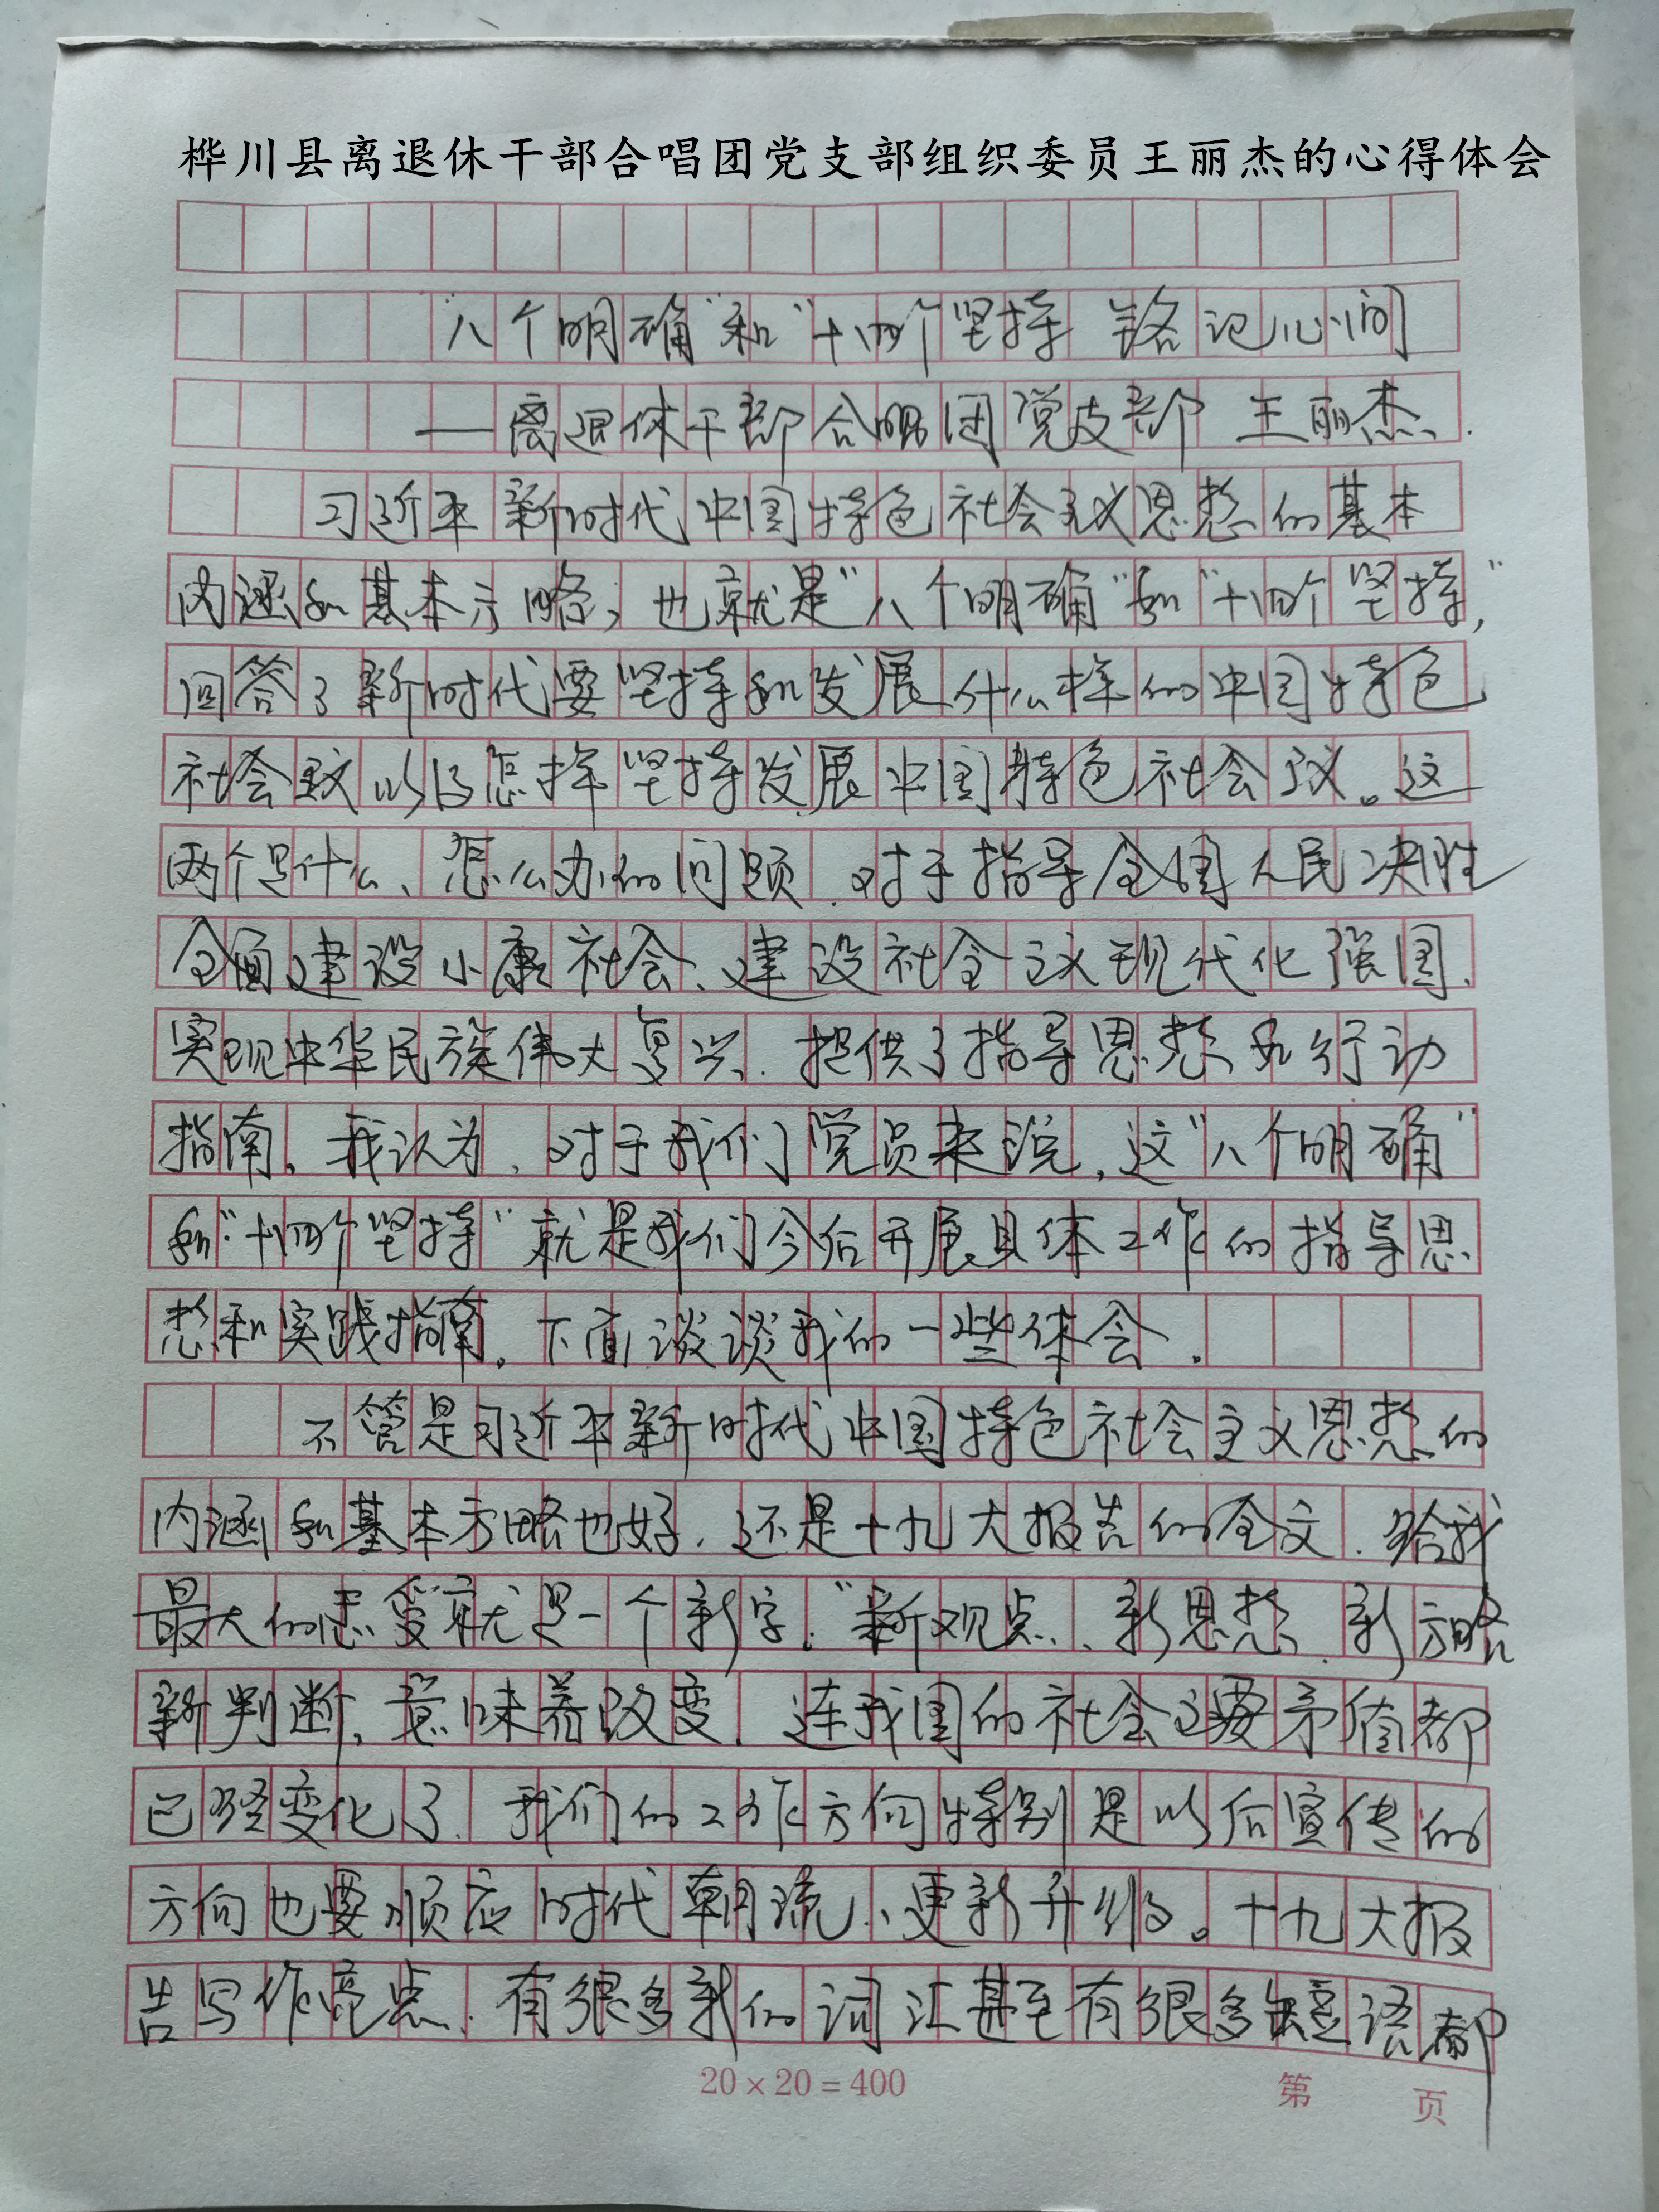 桦川县离退休干部合唱团党支部组织委员王丽杰的心得体会
"八个明确"和"十四个坚持 铭记心间
——离退休干部合唱团党支部 王丽杰.
习近平新时代中国特色社会主义思想的基本
内涵和基本方略,也就是"八个明确"和"十四个坚持,"
回答了新时代要坚持和发展什么样的中国特色
社会主义以及怎样坚持发展中国特色社会主义。这
两个是什么、怎么办的问题.对于指导全国人民决胜
全面建设小康社会、建设社会主义现代化强国、
实现中华民族伟大复兴.提供了指导思想和行动
指南。我认为,对于我们党员来说,这"八个明确"
和"十四个坚持"就是我们今后开展具体工作的指导思
想和实践指南。下面谈谈我的一些体会.
不管是习近平新时代中国特色社会主义思想的
内涵和基本方略也好.还是十九大报告的全文.给我
最大的感受就是一个新字."新观点、新思想、新方略
新判断,意味着改变.连我国的社会主要矛盾都
已经变化了.我们的工作方向特别是以后宣传的
方向也要顺应时代朝流、更新升级。十九大报
告写作亮点.有很多新的词汇甚至有很多 语都
20×20=400
第 页